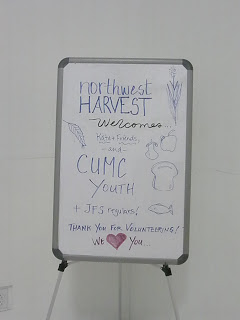 northwest
HARVEST
Welcomes...
Kate + Friends
- and -
CUMC
YOUTH
+ JFS regulars!
THANK YOU FOR VOLUNTEERING!
WE ♥ YOU...